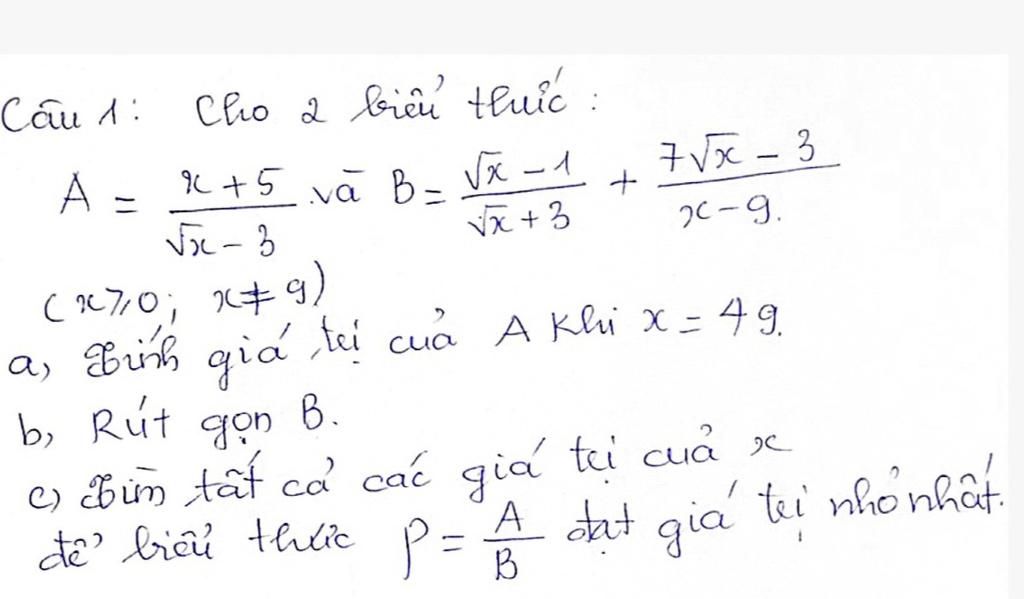 Câu 1: Cho 2 biểu thức:
A = \frac{x+5}{\sqrt{x}-3} và B = \frac{\sqrt{x}-1}{\sqrt{x}+3} + \frac{7\sqrt{x}-3}{x-9}.
(x ≥ 0; x ≠ 9)
a, Tính giá trị của A khi x = 49.
b, Rút gọn B.
c) Tìm tất cả các giá trị của x
để biểu thức P = \frac{A}{B} đạt giá trị nhỏ nhất.